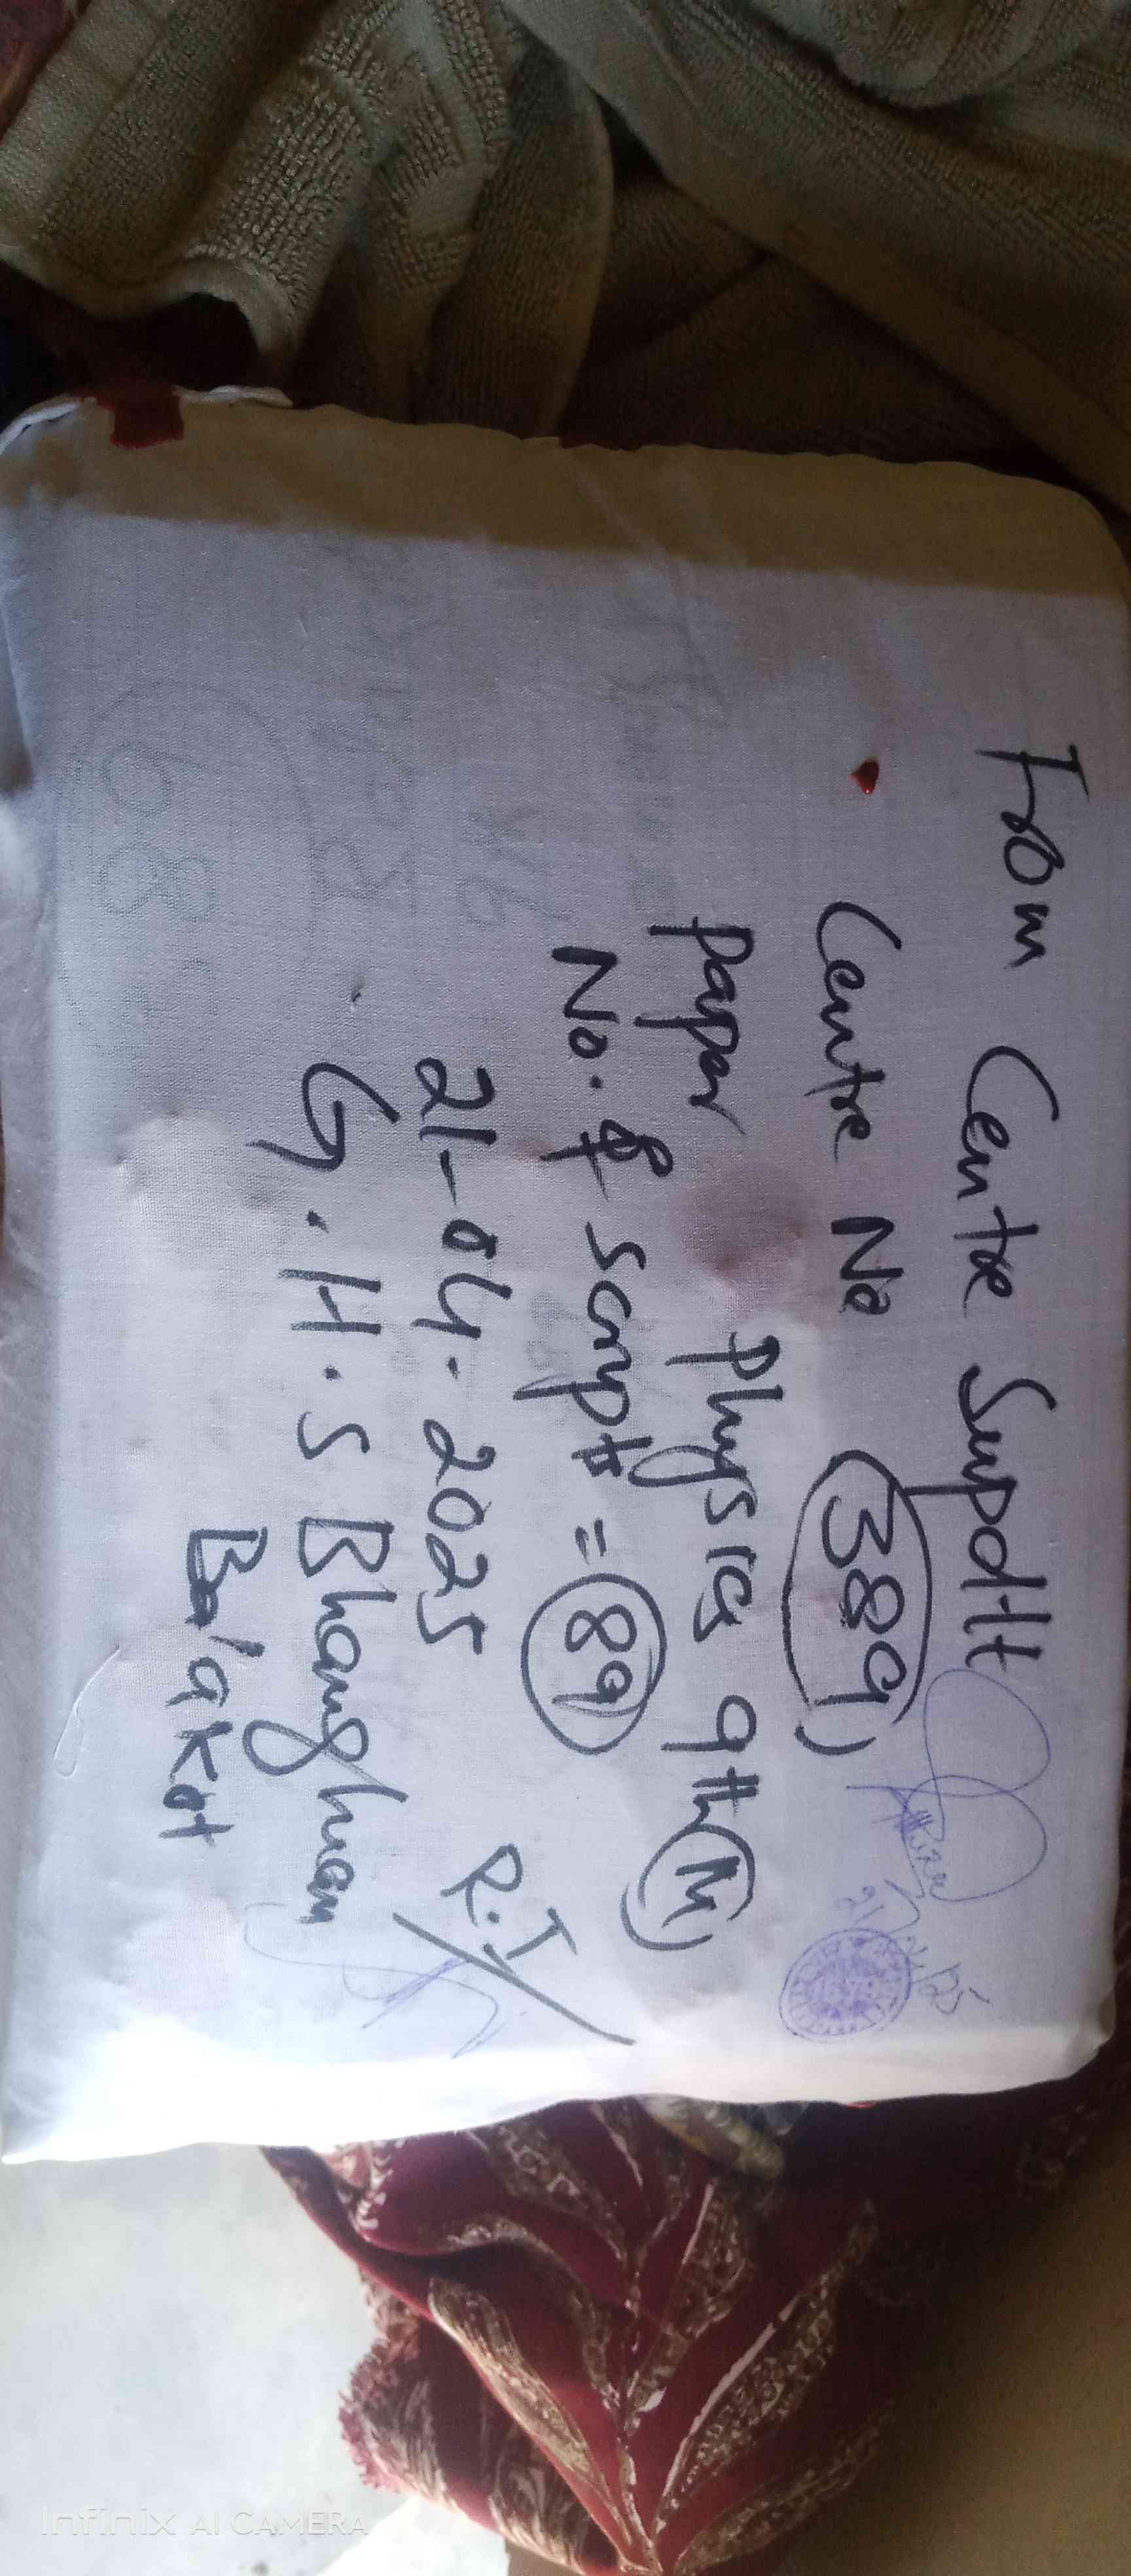 From Centre Supdtt
Centre No (389)
Paper Physics 9th (M)
No. of Script = 89
21-04-2025
R.T
G.H.S Bhanghian
Ba'akot
Infinix AI CAMERA